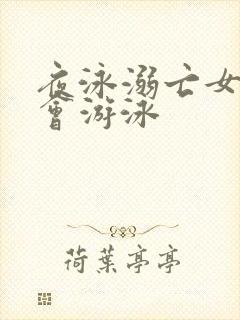 夜泳溺亡女
會游泳
荷葉亭亭